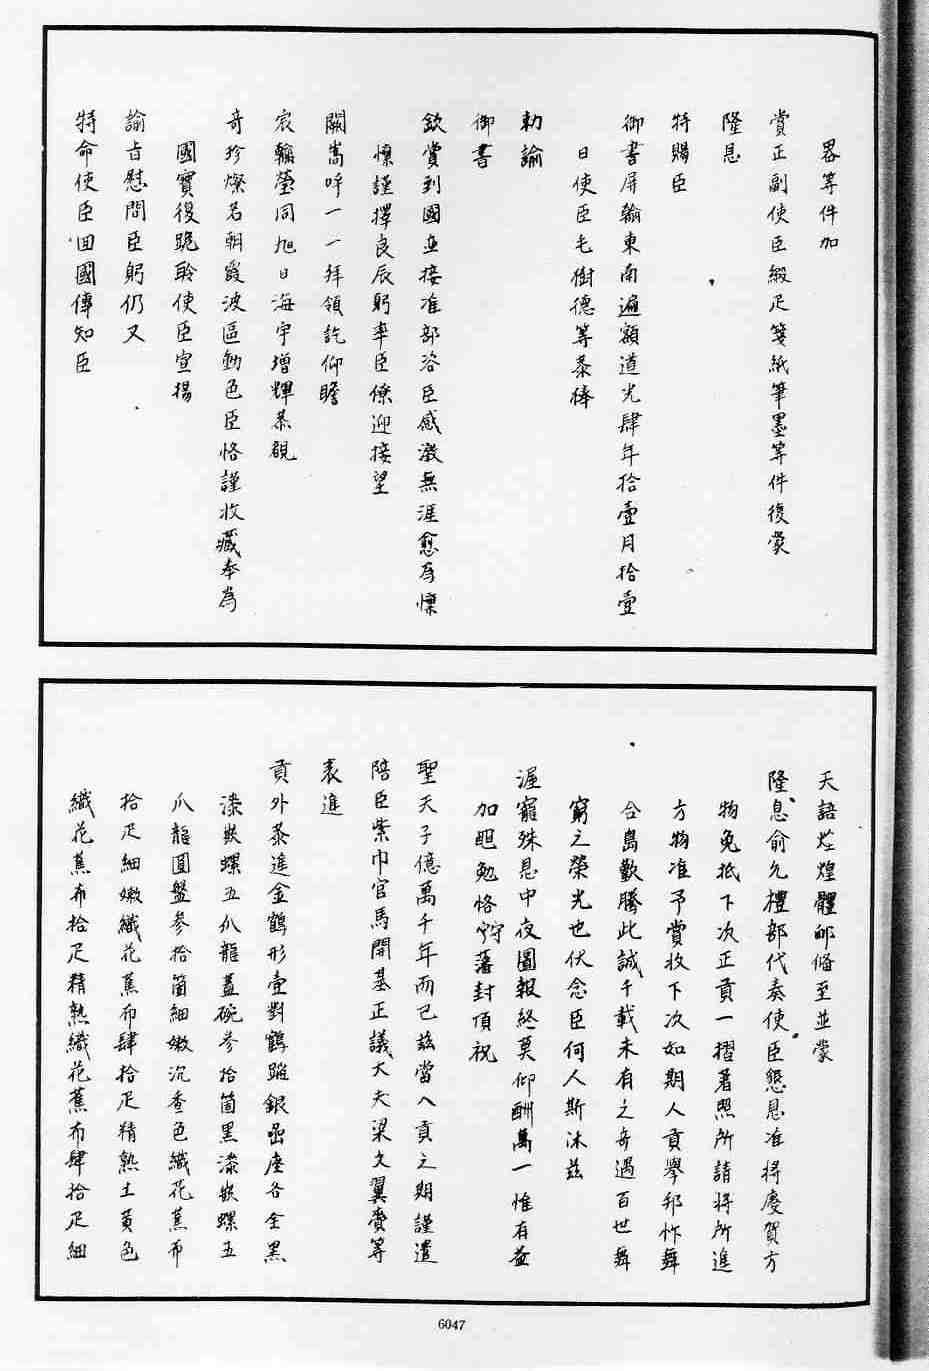 畧等件加
賞正副使臣緞疋箋紙筆墨等件復蒙
隆恩
特賜臣
御書屏翰東南遍額道光肆年拾壹月拾壹
日使臣毛樹德等恭捧
勅諭
御書
欽賞到國並接准部咨臣感激無涯愈為慄
慄謹擇良辰躬率臣僚迎接望
闕嵩呼一一拜領訖仰瞻
宸翰瑩同旭日海宇增輝恭覩
奇珍燦若朝霞波區動色臣恪謹收藏奉為
國寶復跪聆使臣宣揚
諭旨慰問臣躬仍又
特命使臣回國傳知臣
天語煌煌體邮偹至並蒙
隆恩俞允禮部代奏使臣懇恩准將慶賀方
物免抵下次正貢一摺著照所請將所進
方物准予賞收下次如期入貢舉邦忭舞
合島歡騰此誠千載未有之奇遇百世無
窮之榮光也伏念臣何人斯沐茲
渥寵殊恩中夜圖報終莫仰酬萬一惟有益
加黽勉恪守藩封頂祝
聖天子億萬千年而已茲當入貢之期謹遣
陪臣紫巾官馬開基正議大夫梁文翼賫等
表進
貢外恭進金鶴形壹對鶴踏銀嵒座各全黑
漆嵌螺五爪龍蓋碗參拾箇黑漆嵌螺五
爪龍圓盤參拾箇細嫩沉香色織花蕉布
拾疋細嫩織花蕉布肆拾疋精熟土黃色
織花蕉布拾疋精熟織花蕉布肆拾疋細
6047